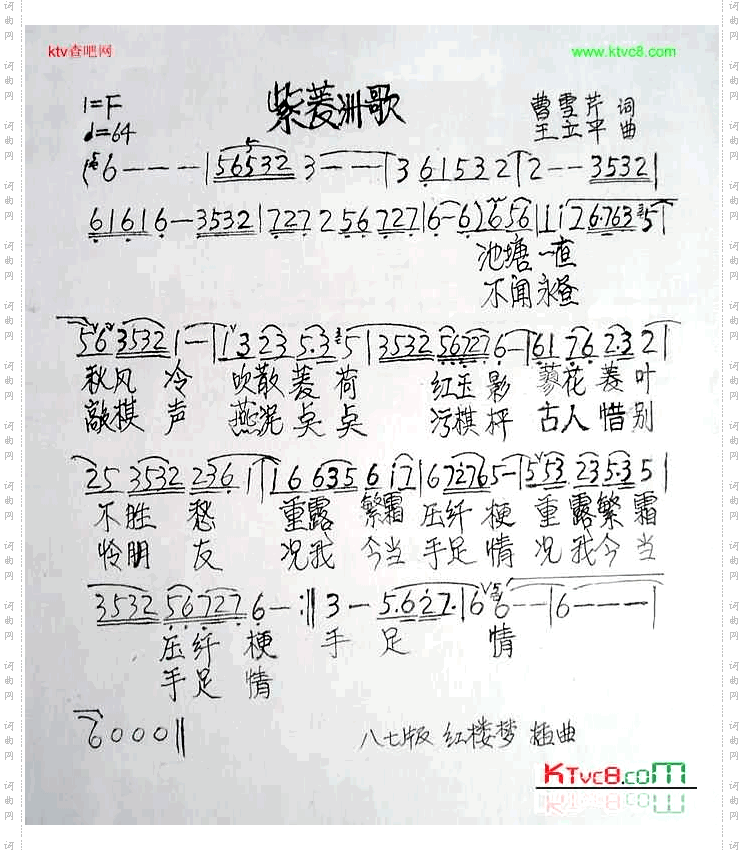 ktv查吧网
www.ktvc8.com
紫菱洲歌
1=F
♩=64
曹雪芹 词
王立平 曲
6 - - - | 56532 3 - - - | 3 61532 | 2 - - 3532 |
61616 - 3532 | 727 2 56 727 | 6 - 6
池塘 一直
不闻 永昼
秋风 冷 吹散 菱 荷 红玉 影 蓼花 菱 叶
敲棋 声 燕泥 点 点 污棋 枰 古人 惜 别
25 3532 236 1 | 1 6 6635 6 i7 | 6 72765 - | 553 235.3 5 |
不胜 愁 重露 繁霜 压纤 梗 重 露繁 霜
怜朋 友 况我 今当 手足 情 况 我今 当
3532 56727 6 - :‖ 3 - 5.627. | 6 6 - - | 6 - - - |
压纤 梗 手 足 情
手足 情
6 0 0 0 ‖
八七版 红楼梦 插曲
KTvc8.com
词曲网